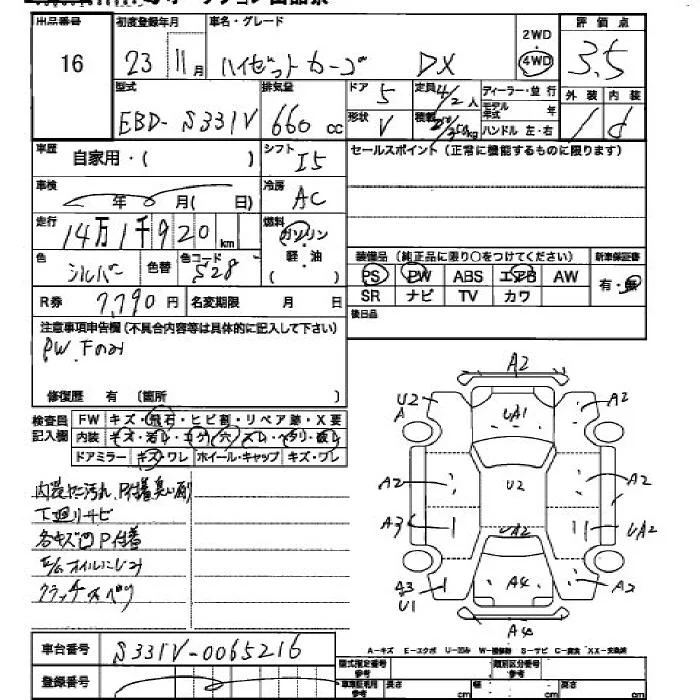 出品番号 初度登録年月 車名・グレード 2WD 評価点
16 23 11月 ハイゼットカーゴ DX 4WD 3.5
型式 排気量 ドア 5 定員 4/2人 ディーラー・並行 外装 内装
EBD-S331V 660cc 形状 V 積載 kg モデル年式 年 d
ハンドル 左・右
車歴 自家用・( ) シフト I5 セールスポイント(正常に機能するものに限ります)
車検 年 月(日) 冷房 AC
走行 14万1千920km 燃料 ガソリン
軽・油
( )
装備品(純正品に限り○をつけてください) 新車保証書
色 シルバー 色替 色コード S28 PS PW ABS エアB AW 有・無
R券 7,790円 名変期限 月 日 SR ナビ TV カワ
後日品
注意事項申告欄(不具合内容等は具体的に記入して下さい)
PW.Fのみ
修復歴 有 (箇所 )
検査員記入欄 FW キズ・飛石・ヒビ割・リペア跡・X要
内装 キズ・汚レ・コゲ・穴・スレ・ヘタリ・破レ
ドアミラー キズ・ワレ ホイール・キャップ キズ・ワレ
下廻りサビ
各キズ凹P付着
E/Gオイルにじみ
A2
U2 A UA1 A2
A2 U2 A2
A3 UA2 UA2
A3 U1 A4 A2
A4
A-キズ E-エクボ U-凹み W-補修跡 S-サビ C-腐食 XX-交換済
車台番号 S331V-0065216
登録番号
型式指定番号 参考 類別区分番号 参考
車検証記載 参考 長さ cm 幅 cm 高さ cm